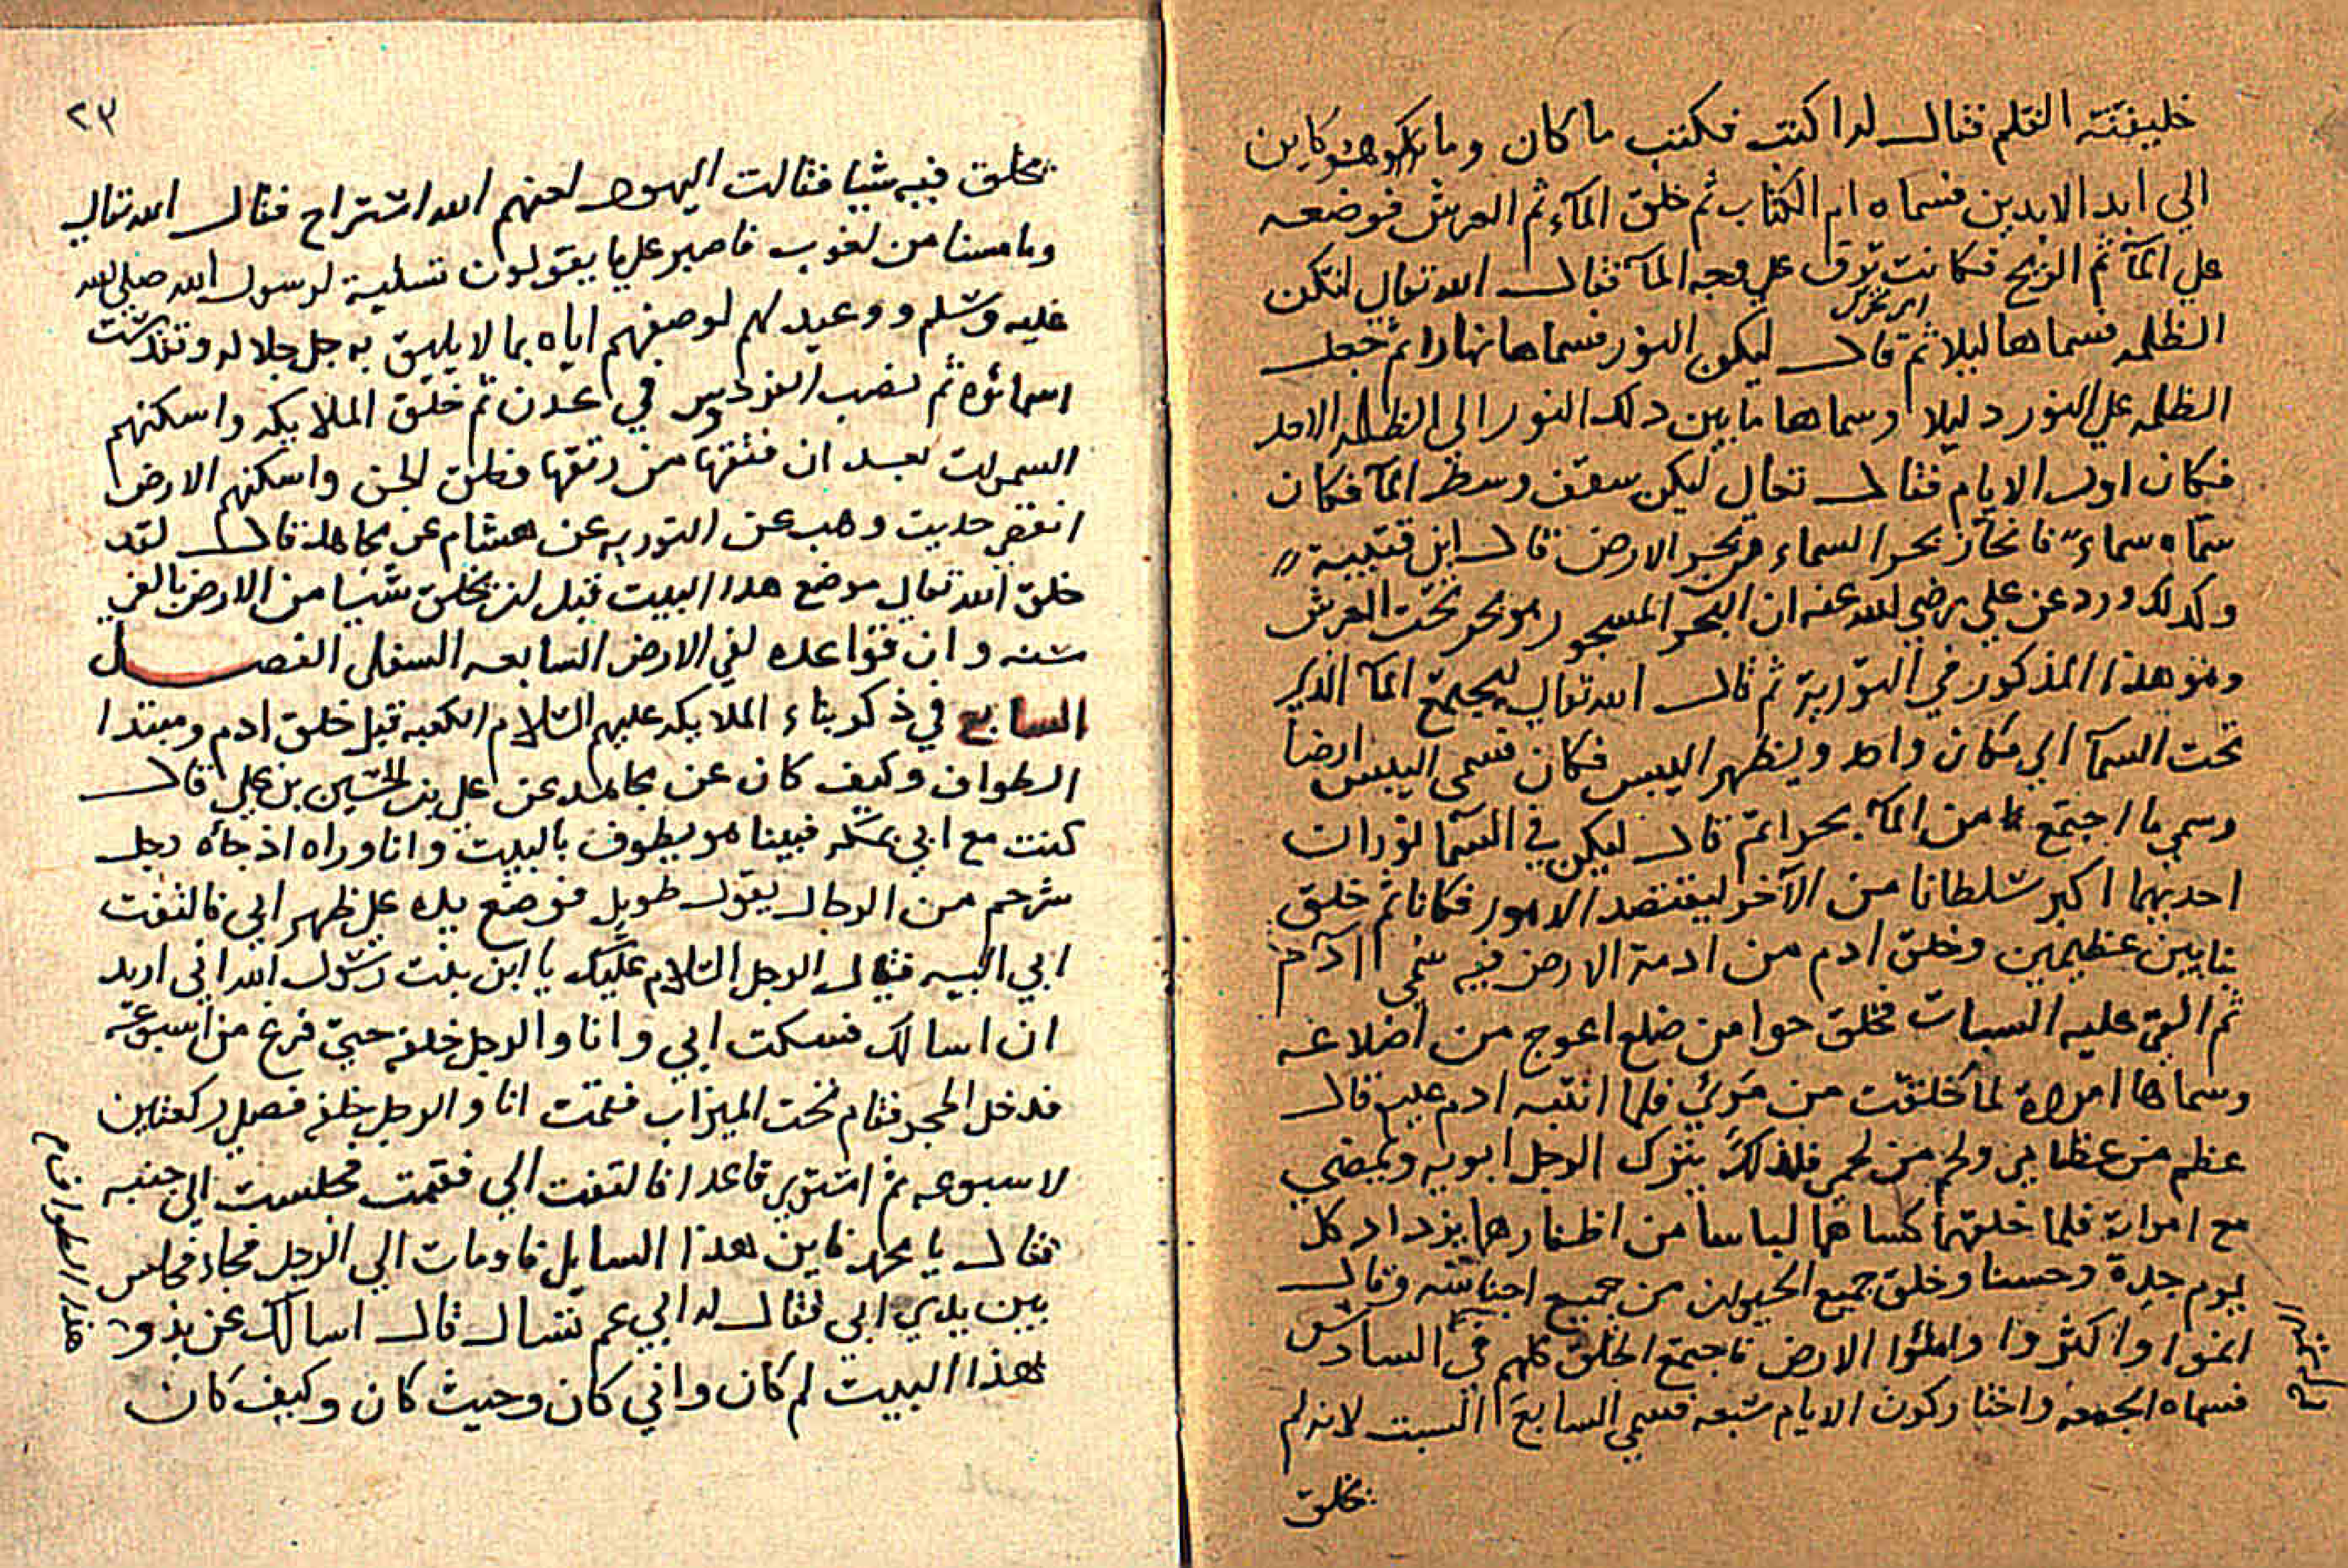 خليقته القلم فقال له اكتب فكتب ما كان وما يكون هو كاين
الي ابد الابدين فسماه ام الكتاب ثم خلق المآء ثم العرش فوضعه
علي المآ ثم الريح فكانت ترف علي وجه المآ فقال الله تعالي لتكن
الظلمه فسماها ليلا ثم قال ليكن النور فسماها نهارا ثم جعل
الظلمه علي النور دليلا وسماها ما بين ذلك النور الي الظلمه الاحد
فكان اول الايام فقال تعالي ليكن سقف وسط المآ فكان
سمّاه سماءً فانحاز بحر السماء من بحر الارض قال ابن قتيبية
وكذلك ورد عن علي رضي الله عنه ان البحر المسجور هو بحر تحت العرش
وهو هذا المذكور في التورية ثم قال الله تعالي ليجتمع المآ الذي
تحت السمآ الي مكان واحد ويظهر اليبس فكان فسمي اليبس ارضا
وسمي ما اجتمع من المآ بحرا ثم قال ليكن في السمآ نوران
احديهما اكبر سلطانا من الآخر ليقتضد الامور فكانا ثم خلق
بنايين عظيمين وخلق ادم من ادمة الارض فبه سُمي اادم
ثم القي عليه السبات فخلق حوا من ضلع اعوج من اضلاعه
وسماها امراة لما خلقت من مَرئٍ فلما انتبه ادم عليه قال
عظم من عظامي ولحم من لحمي فلذلك يترك الرجل ابويه ويمضي
مع امراته فلما خلقهما كساهما لباسا من اظفارهما يزداد كل
يوم جدة وحسنا وخلق جميع الحيوان من جميع اجناسه وقال
انموا واكثروا واملئوا الارض فاجتمع الخلق كلهم في السادس
فسماه الجمعه واختار كون الايام سبعه فسمي السابع السبت لانه لم
يخلق
٢٣
يخلق فيه شيا فقالت اليهود لعنهم الله استراح فقال الله تعالي
وما مسنا من لغوب فاصبر علي ما يقولون تسلية لرسول الله صلي الله
عليه وسلم ووعيد لهم لوصفهم اياه بما لا يليق به جل جلاله وتقدست
اسمائوه ثم نصب الفردوس في عدن ثم خلق الملايكه واسكنهم
السموات بعد ان فتقها من رتقها وخلق الجن واسكنهم الارض
انقضي حديث وهب عن التوريه عن هشام عن مجاهد قال لقد
خلق الله تعالي موضع هذا البيت قبل ان يخلق شيا من الارض بالفي
سنه وان قواعده لفي الارض السابعه السفلي الفصل
السابع في ذكر بناء الملايكه عليهم السلام الكعبه قبل خلق ادم ومبتدا
الطواف وكيف كان عن مجاهد عن علي بن الحسين بن علي قال
كنت مع ابي بمكه فبينا هو يطوف بالبيت وانا وراه اذ جاه رجل
شرحم من الرجال يقول طويل فوضع يده علي ظهر ابي فالتفت
ابي اليه فقال الرجل السلام عليك يا ابن بنت رسول الله اني اريد
ان اسالك فسكت ابي وانا والرجل خلفه حتي فرغ من اسبوعه
فدخل الحجر فقام تحت الميزاب فقمت انا والرجل خلفه فصلي ركعتين
لاسبوعه ثم استوي قاعدا فالتفت الي فقمت فجلست الي جنبه
فقال يا محمد فاين هذا السايل فاومات الي الرجل فجاء فجلس
بين يدي ابي فقال له ابي عم تسال قال اسالك عن بدو
هذا البيت لم كان واني كان وحيث كان وكيف كان